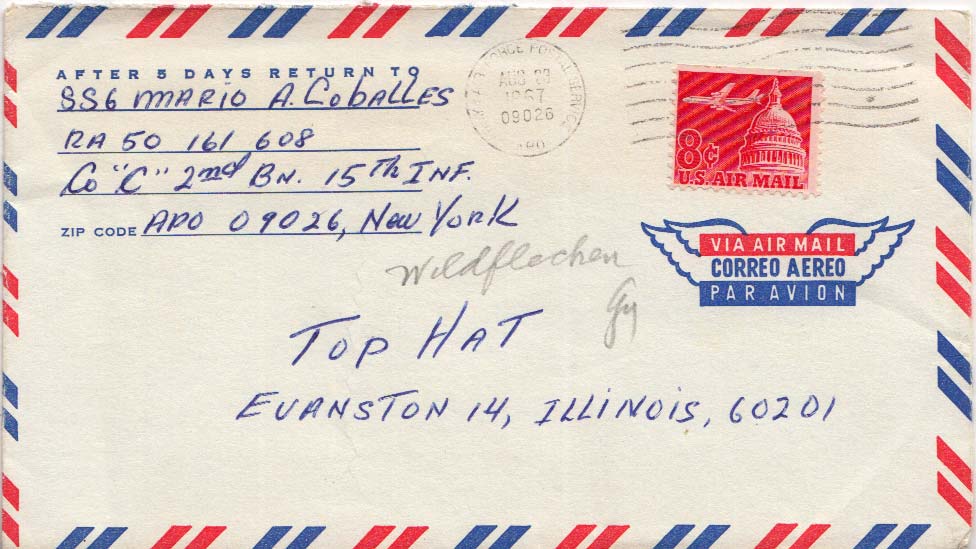 AFTER 5 DAYS RETURN TO
SSG MARIO A. CoBALLES
RA 50 161 608
Co "C" 2nd BN. 15th INF.
ZIP CODE APO 09026, New York
AUG 1967
09026
APO
8¢
U.S. AIR MAIL
VIA AIR MAIL
CORREO AEREO
PAR AVION
Wildflechen
TOP HAT
EVANSTON 14, ILLINOIS, 60201